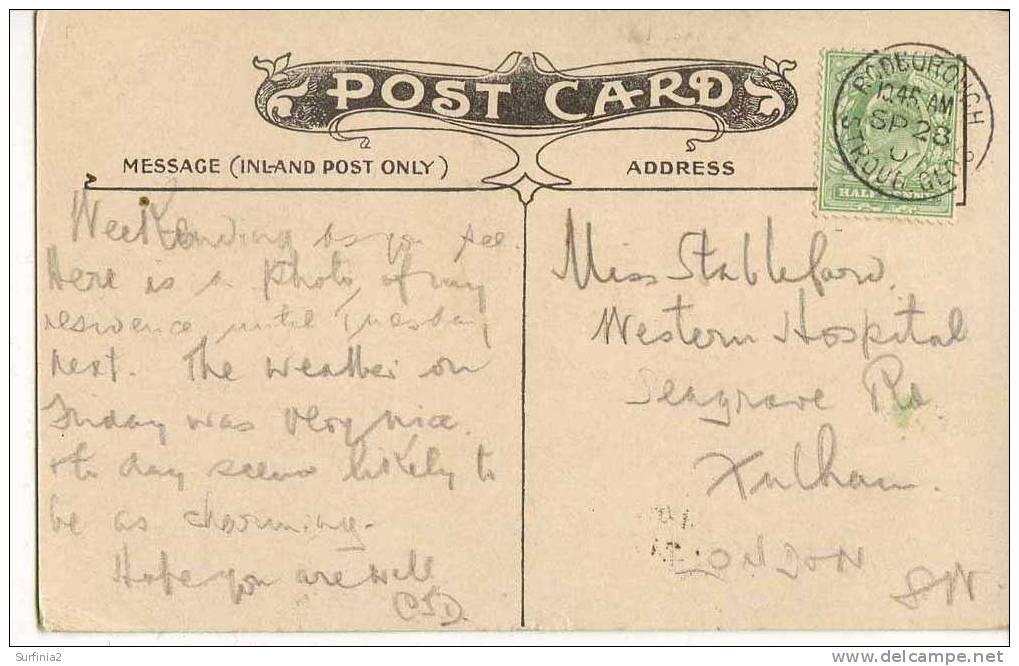 POST CARD
MESSAGE (INLAND POST ONLY)
ADDRESS
RODBOROUGH
10.45 AM
SP 28
STROUD. GLOS
HALFPENNY
Weekending as you see.
Here is a photo, of my
residence until Tuesday
next. The weather on
Friday was very nice.
& to day seems likely to
be as charming.
Hope you are well
Miss Stableford,
Western Hospital
Seagrave Rd
Fulham.
LONDON
SW.
Surfinia2
delcampe.net